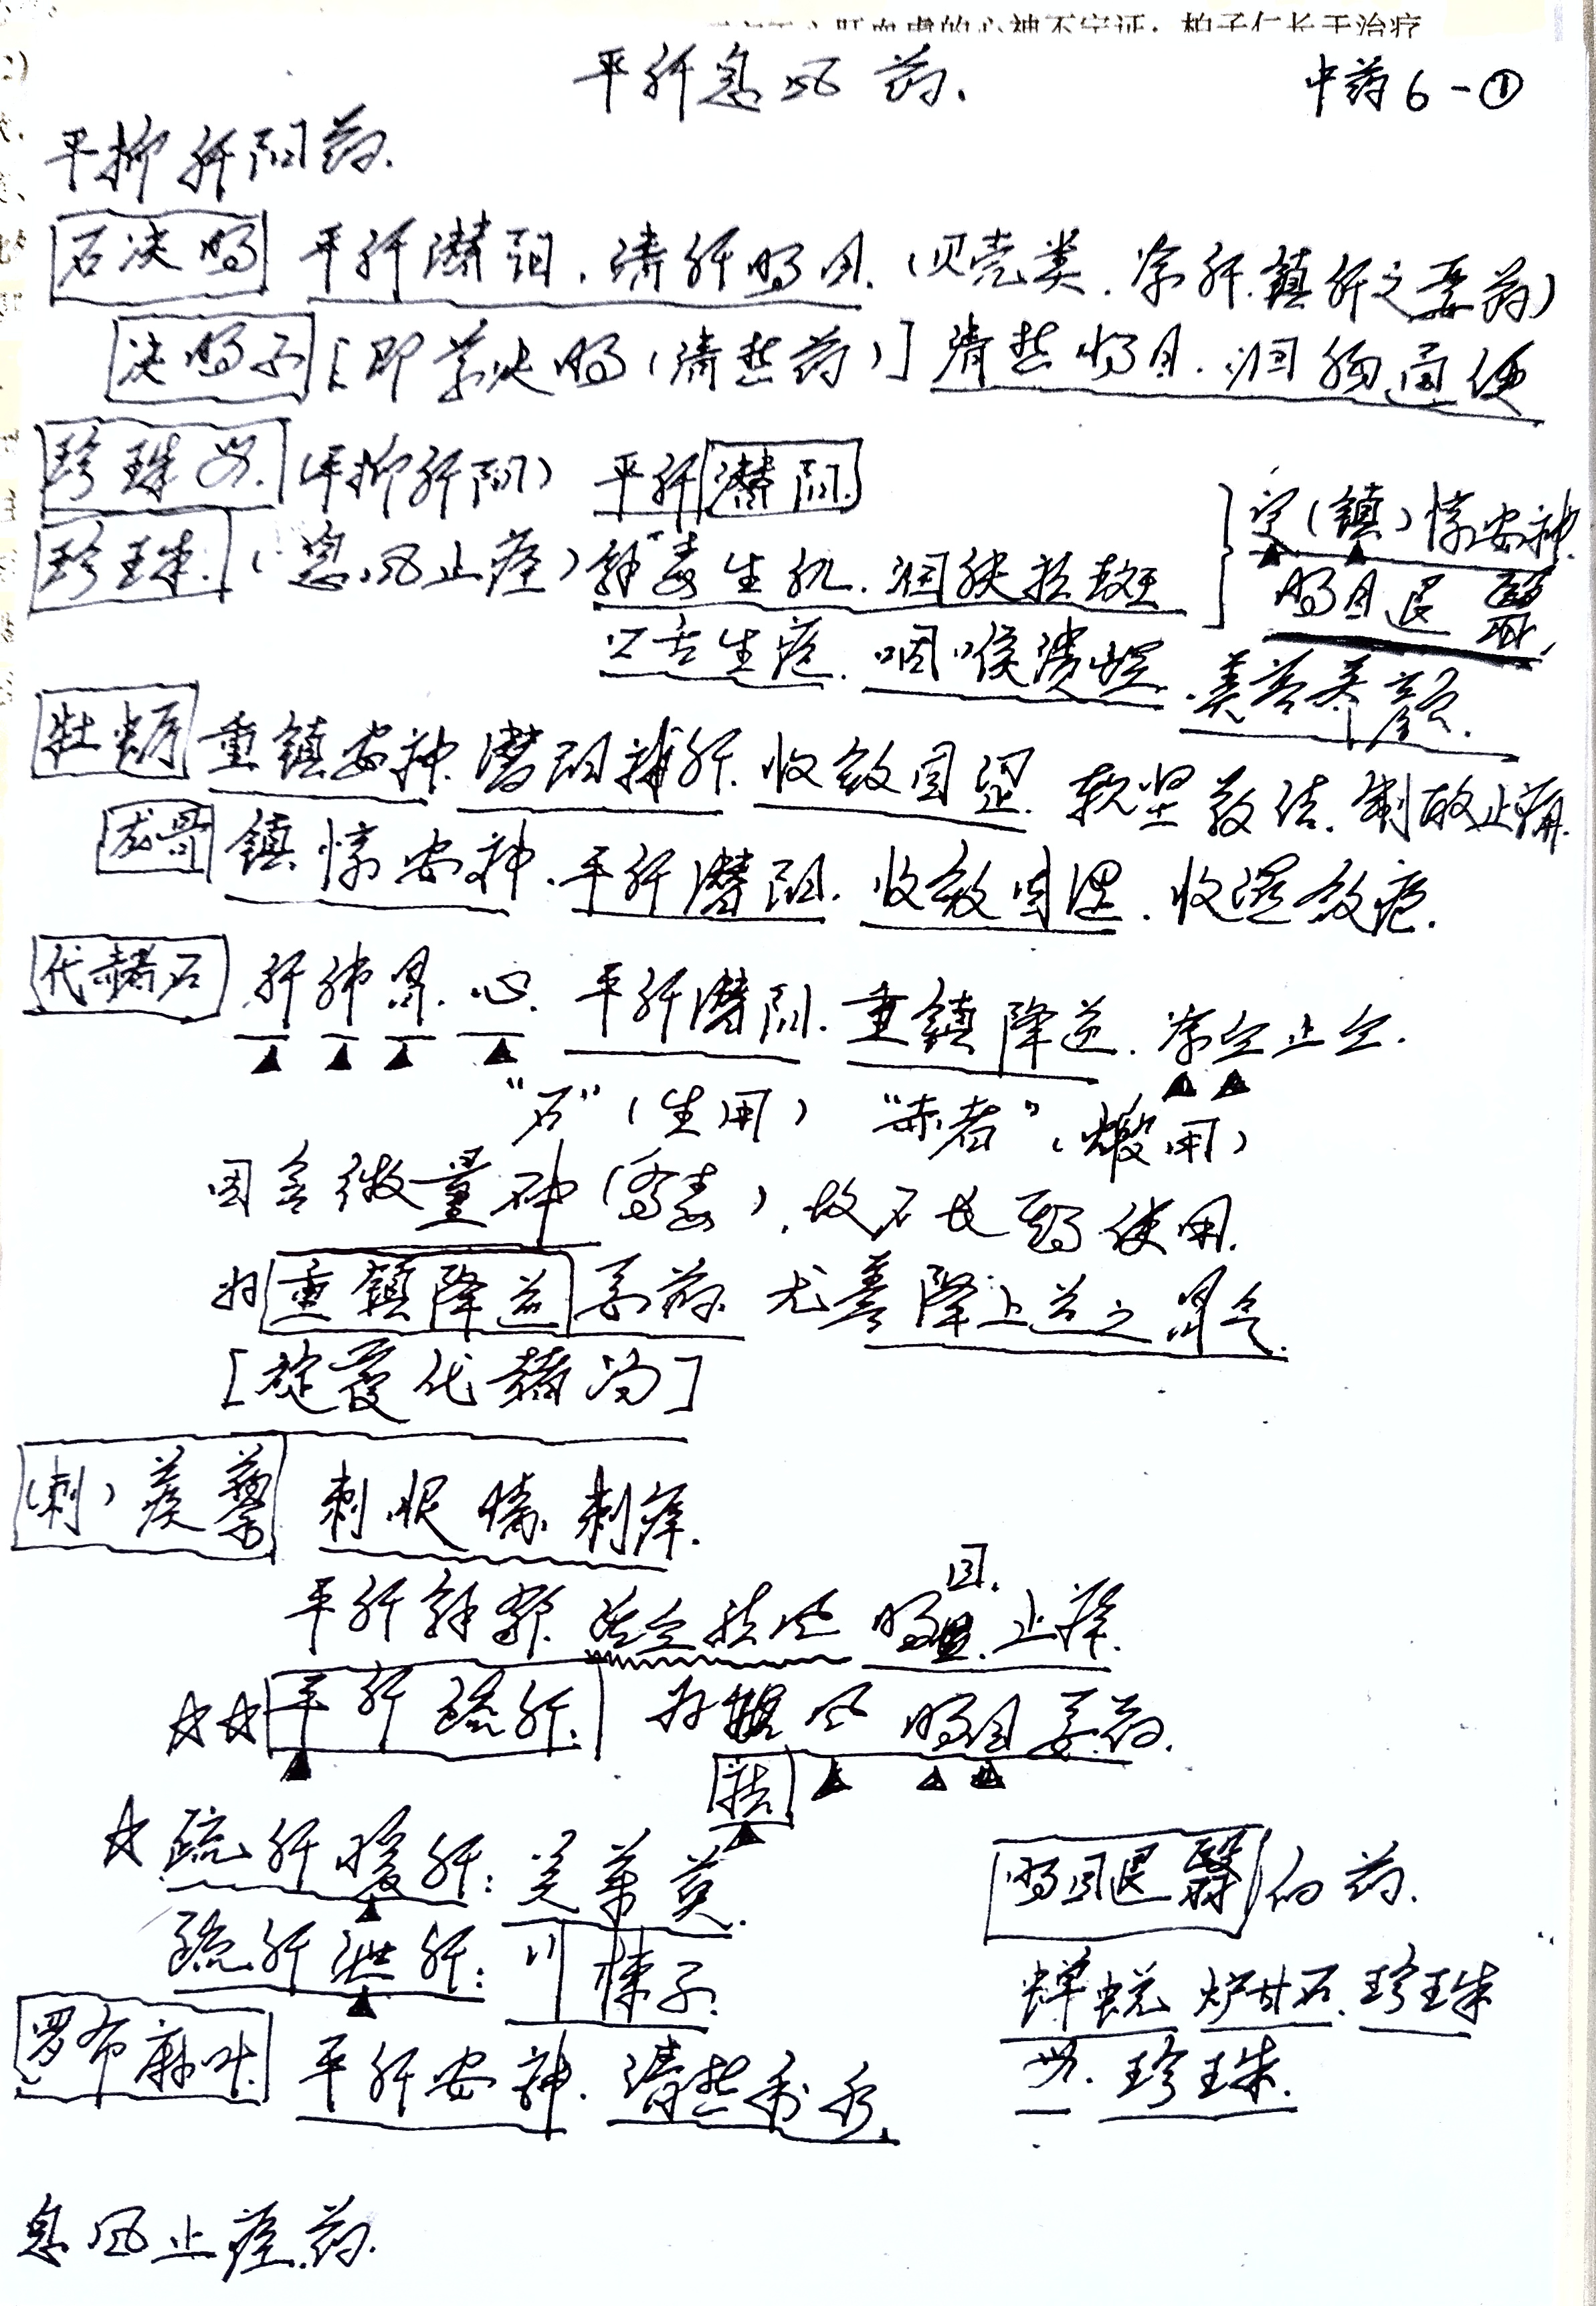 肝血虚的心神不宁证；柏子仁长于治疗
平肝息风药.
中药6-①
平抑肝阳药.
石决明 平肝潜阳.清肝明目.(贝壳类.凉肝.镇肝之要药)
决明子[即草决明(清热药)]清热明目.润肠通便
珍珠母.(平抑肝阳) 平肝潜阳.
珍珠.(息风止痉)解毒生肌.润肤祛斑
}定(镇)惊安神.
明目退翳.
口舌生疮.咽喉溃烂.美容养颜.
牡蛎 重镇安神.潜阳补阴.收敛固涩.软坚散结.制酸止痛.
龙骨 镇惊安神.平肝潜阳.收敛固涩.收湿敛疮.
代赭石 肝肺胃.心.平肝潜阳.重镇降逆.凉血止血.
"石"(生用) "赤者"(煅用)
因含微量砷(有毒),故不长期使用.
为重镇降逆要药.尤善降上逆之胃气.
[旋覆代赭汤]
(刺)蒺藜 刺眼睛.刺痒.
平肝解郁.活血祛风 明目.止痒.
☆☆平肝疏肝. 为祛风明目要药.
祛
☆疏肝暖肝:吴茱萸.
疏肝泄肝:川楝子.
明目退翳的药.
蝉蜕 炉甘石.珍珠
母.珍珠.
罗布麻叶.平肝安神.清热利水.
息风止痉药.